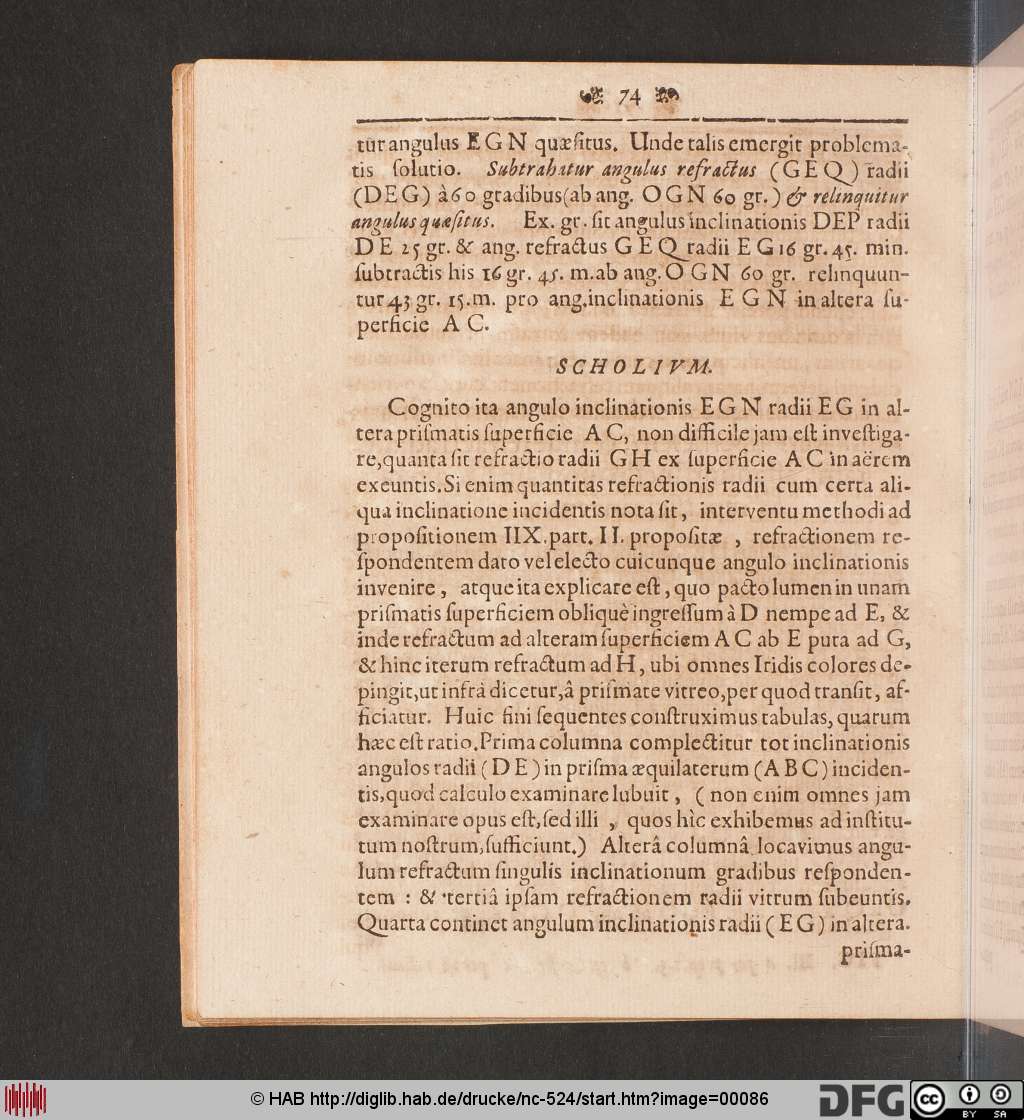 74
tur angulus EGN quæſitus. Unde talis emergit problema-
tis ſolutio. Subtrahatur angulus refractus (GEQ) radii
(DEG) à 60 gradibus (ab ang. OGN 60 gr.) & relinquitur
angulus quæſitus. Ex. gr. ſit angulus inclinationis DEP radii
DE 25 gr. & ang. refractus GEQ radii EG 16 gr. 45. min.
ſubtractis his 16 gr. 45. m. ab ang. OGN 60 gr. relinquun-
tur 43 gr. 15. m. pro ang. inclinationis EGN in altera ſu-
perficie AC.
SCHOLIVM.
Cognito ita angulo inclinationis EGN radii EG in al-
tera priſmatis ſuperficie AC, non difficile jam eſt inveſtiga-
re, quanta ſit refractio radii GH ex ſuperficie AC in aërem
exeuntis. Si enim quantitas refractionis radii cum certa ali-
qua inclinatione incidentis nota ſit, interventu methodi ad
propoſitionem IIX. part. II. propoſitæ, refractionem re-
ſpondentem dato vel electo cuicunque angulo inclinationis
invenire, atque ita explicare eſt, quo pacto lumen in unam
priſmatis ſuperficiem obliquè ingreſſum à D nempe ad E, &
inde refractum ad alteram ſuperficiem AC ab E puta ad G,
& hinc iterum refractum ad H, ubi omnes Iridis colores de-
pingit, ut infrà dicetur, â priſmate vitreo, per quod tranſit, af-
ficiatur. Huic fini ſequentes conſtruximus tabulas, quarum
hæc eſt ratio. Prima columna complectitur tot inclinationis
angulos radii (DE) in priſma æquilaterum (ABC) inciden-
tis, quod calculo examinare lubuit, (non enim omnes jam
examinare opus eſt, ſed illi, quos hîc exhibemus ad inſtitu-
tum noſtrum, ſufficiunt.) Alterâ columnâ locavimus angu-
lum refractum ſingulis inclinationum gradibus reſponden-
tem: & tertiâ ipſam refractionem radii vitrum ſubeuntis.
Quarta continet angulum inclinationis radii (EG) in altera.
priſma-
© HAB http://diglib.hab.de/drucke/nc-524/start.htm?image=00086
DFG
cc BY SA